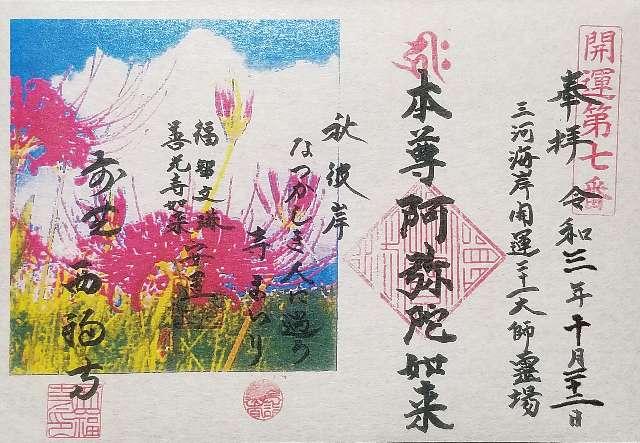 開運第七番
奉拝 令和三年十月二十二日
三河海岸開運二十一大師霊場
本尊阿弥陀如来
秋彼岸
なつかしき人に遇う
寺まいり
福智文珠
善光寺如来
西福寺